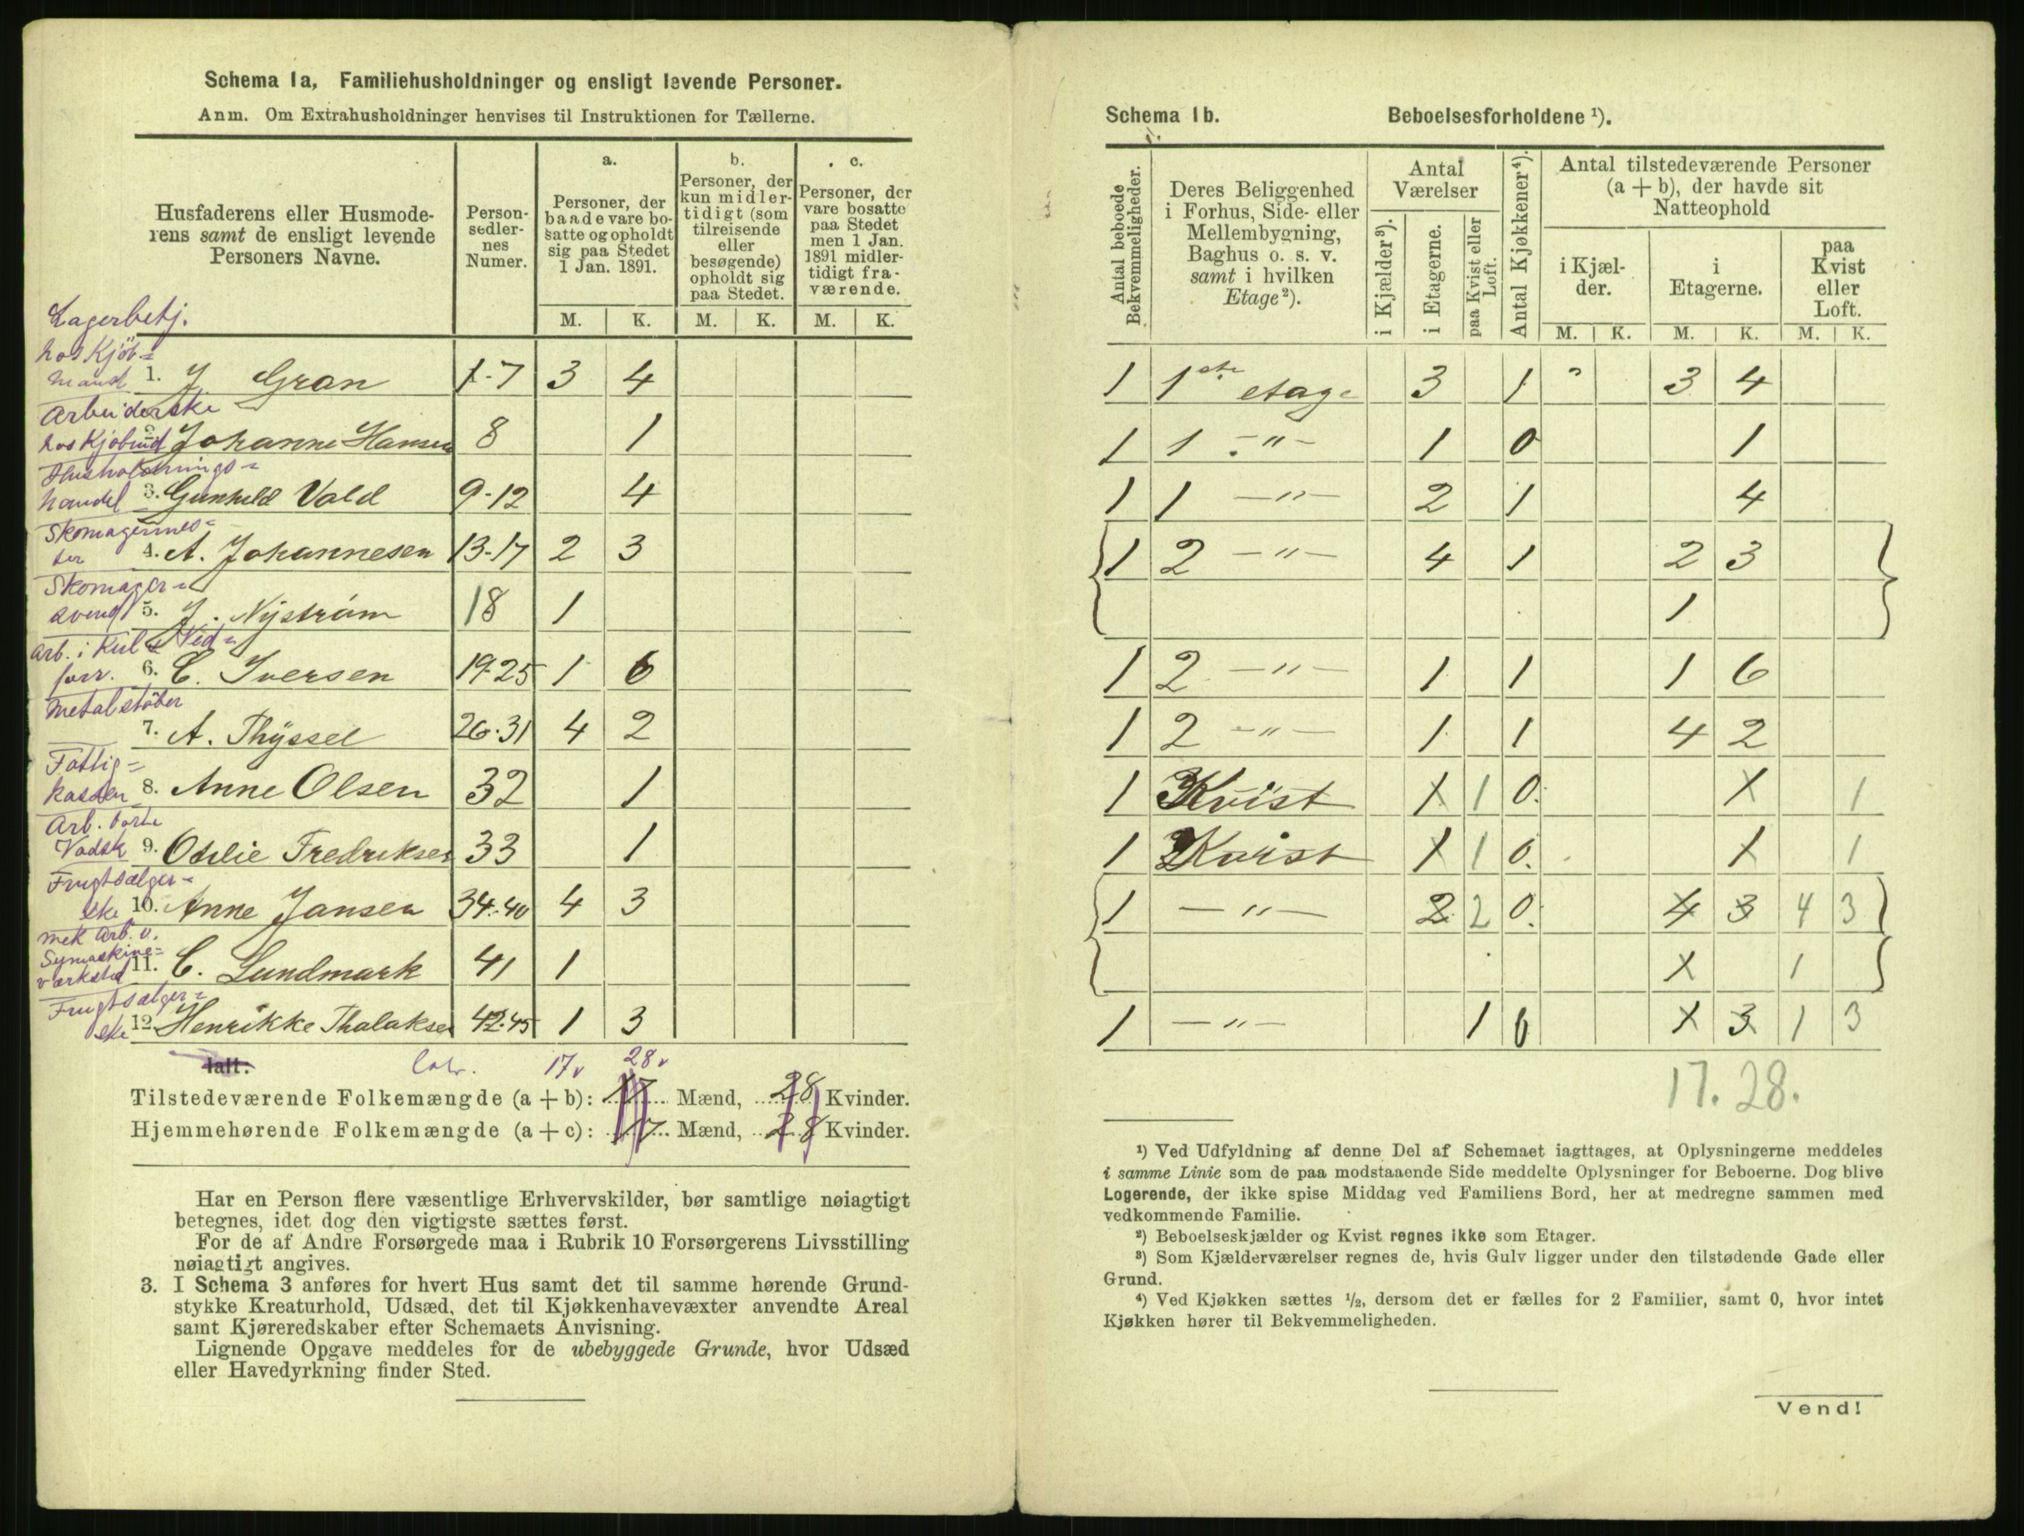 Schema 1a, Familiehusholdninger og ensligt levende Personer.
Anm. Om Extrahusholdninger henvises til Instruktionen for Tællerne.
Husfaderens eller Husmoderens samt de ensligt levende Personers Navne.
Personsedlernes Numer.
a. Personer, der baade vare bosatte og opholdt sig paa Stedet 1 Jan. 1891.
b. Personer, der kun midlertidigt (som tilreisende eller besøgende) opholdt sig paa Stedet.
c. Personer, der vare bosatte paa Stedet men 1 Jan. 1891 midlertidigt fraværende.
M. K. M. K. M. K.
Lagerbetj. hos Kjöbmand 1. J Gran 1-7 3 4
Arbeiderske hos Kjöbmd 2. Johanne Hansen 8 1
Husholdnings=handel 3. Gunhild Vold 9-12 4
Skomagermester 4. A. Johannesen 13-17 2 3
Skomagersvend 5. J. Nyström 18 1
Arb. i Kul & Vedforr. 6. C. Iversen 19-25 1 6
Metalstöber 7. A. Thÿssel 26-31 4 2
Fattigkassen 8. Anne Olsen 32 1
Arb. borte Vadsk 9. Otilie Fredriksen 33 1
Frugtsælgerske 10. Anne Jansen 34-40 4 3
mek Arb. v. Symaskineværksted 11. C. Lundmark 41 1
Frugtsælgerske 12. Henrikke Thalaksen 42-45 1 3
Ialt: 17 28
Tilstedeværende Folkemængde (a + b): 17 Mænd, 28 Kvinder.
Hjemmehørende Folkemængde (a + c): 17 Mænd, 28 Kvinder.
Har en Person flere væsentlige Erhvervskilder, bør samtlige nøiagtigt
betegnes, idet dog den vigtigste sættes først.
For de af Andre Forsørgede maa i Rubrik 10 Forsørgerens Livsstilling
nøiagtigt angives.
3. I Schema 3 anføres for hvert Hus samt det til samme hørende Grund-
stykke Kreaturhold, Udsæd, det til Kjøkkenhavevæxter anvendte Areal
samt Kjøreredskaber efter Schemaets Anvisning.
Lignende Opgave meddeles for de ubebyggede Grunde, hvor Udsæd
eller Havedyrkning finder Sted.
Schema 1b. Beboelsesforholdene ¹).
Antal beboede Bekvemmeligheder.
Deres Beliggenhed i Forhus, Side- eller Mellembygning, Baghus o. s. v. samt i hvilken Etage ²).
Antal Værelser
i Kjælder ³).
i Etagerne.
paa Kvist eller Loft.
Antal Kjøkkener ⁴).
Antal tilstedeværende Personer (a + b), der havde sit Natteophold
i Kjælder.
i Etagerne.
paa Kvist eller Loft.
M. K. M. K. M. K.
1 1ste etage 3 1 " 3 4
1 1 -"- 1 0 1
1 1 -"- 2 1 4
1 2 -"- 4 1 2 3
1
1 2 -"- 1 1 1 6
1 2 -"- 1 1 4 2
1 Kvist 1 1 0. 1 1
1 Kvist 1 1 0. 1 1
1 -"- 2 2 0. 4 3 4 3
1 1
1 -"- 1 0 1 3 1 3
17. 28.
¹) Ved Udfyldning af denne Del af Schemaet iagttages, at Oplysningerne meddeles
i samme Linie som de paa modstaaende Side meddelte Oplysninger for Beboerne. Dog blive
Logerende, der ikke spise Middag ved Familiens Bord, her at medregne sammen med
vedkommende Familie.
²) Beboelseskjælder og Kvist regnes ikke som Etager.
³) Som Kjælderværelser regnes de, hvis Gulv ligger under den tilstødende Gade eller
Grund.
⁴) Ved Kjøkken sættes ½, dersom det er fælles for 2 Familier, samt 0, hvor intet
Kjøkken hører til Bekvemmeligheden.
Vend!